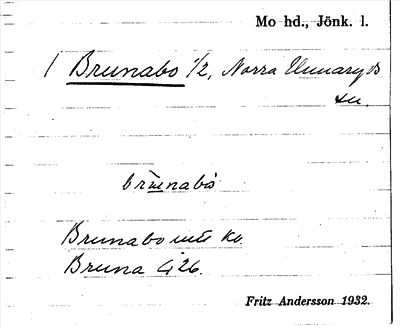 Mo hd., Jönk. l.
1 Brunabo 1/2, Norra Unnaryds
sn.
Brunabo
Bruna G 26.
Fritz Andersson 1932.